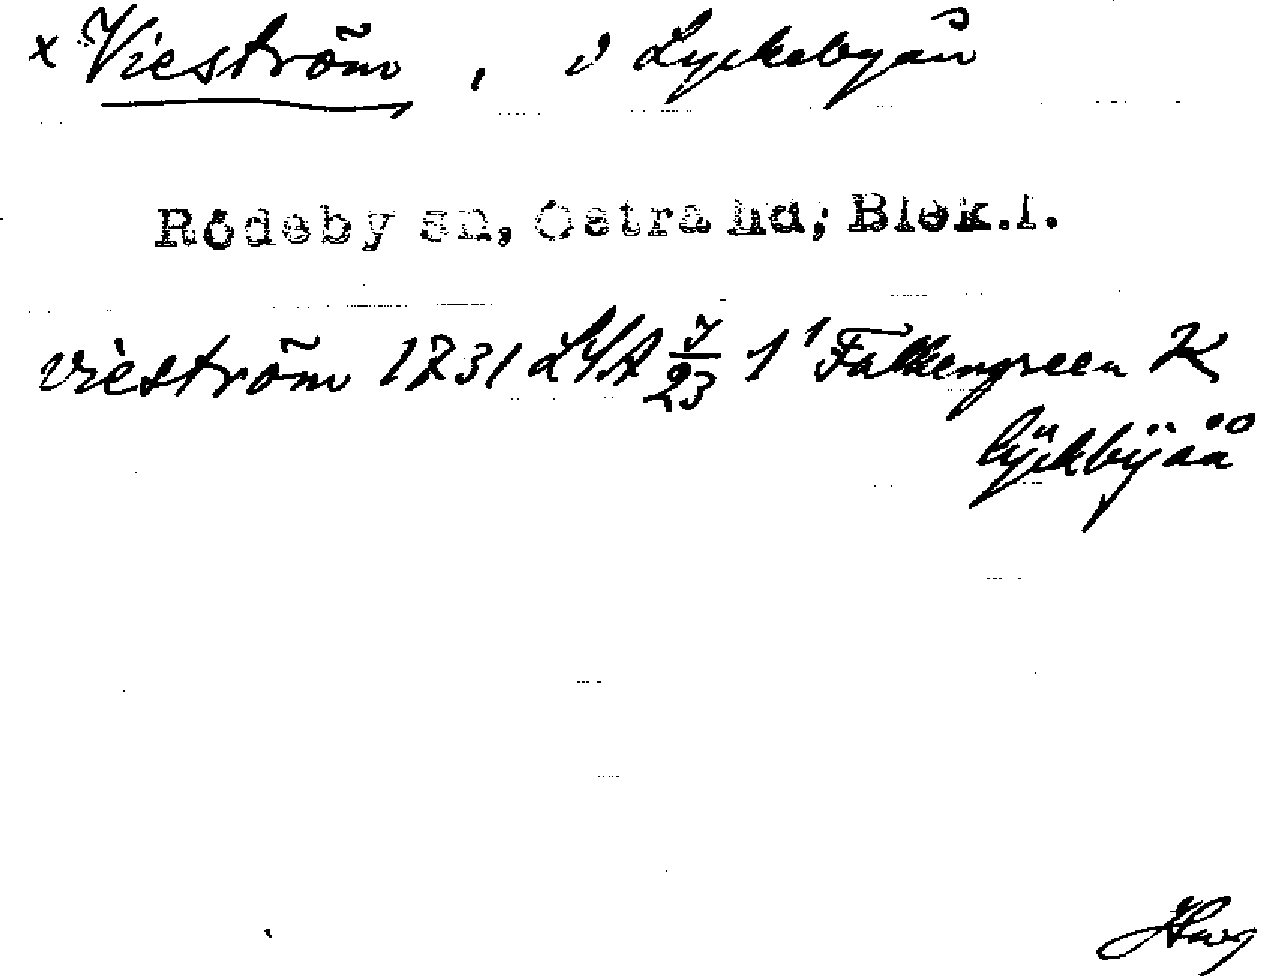 x Vieström, i Lyckebyån
Rödeby sn, Östra hd, Blek.l.
vieström 1731 LSA 7/23 1 1 Falkengreen K
lÿckbÿåå